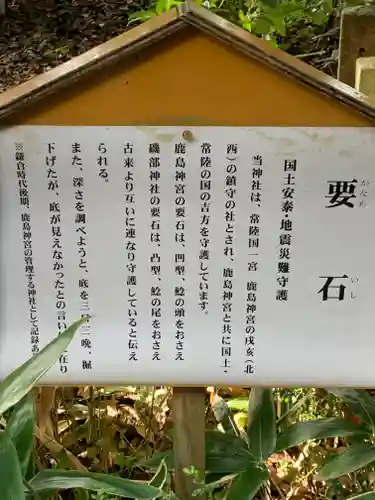 要石
かなめ いし
国土安泰・地震災難守護
当神社は、常陸国一宮 鹿島神宮の戌亥(北
西)の鎮守の社とされ、鹿島神宮と共に国土・
常陸の国の吉方を守護しています。
鹿島神宮の要石は、凹型、鯰の頭をおさえ
磯部神社の要石は、凸型、鯰の尾をおさえ
古来より互いに連なり守護していると伝え
られる。
また、深さを調べようと、底を三日三晩、掘
下げたが、底が見えなかったとの言い
※鎌倉時代後期、鹿島神宮の管理する神社として記録あ